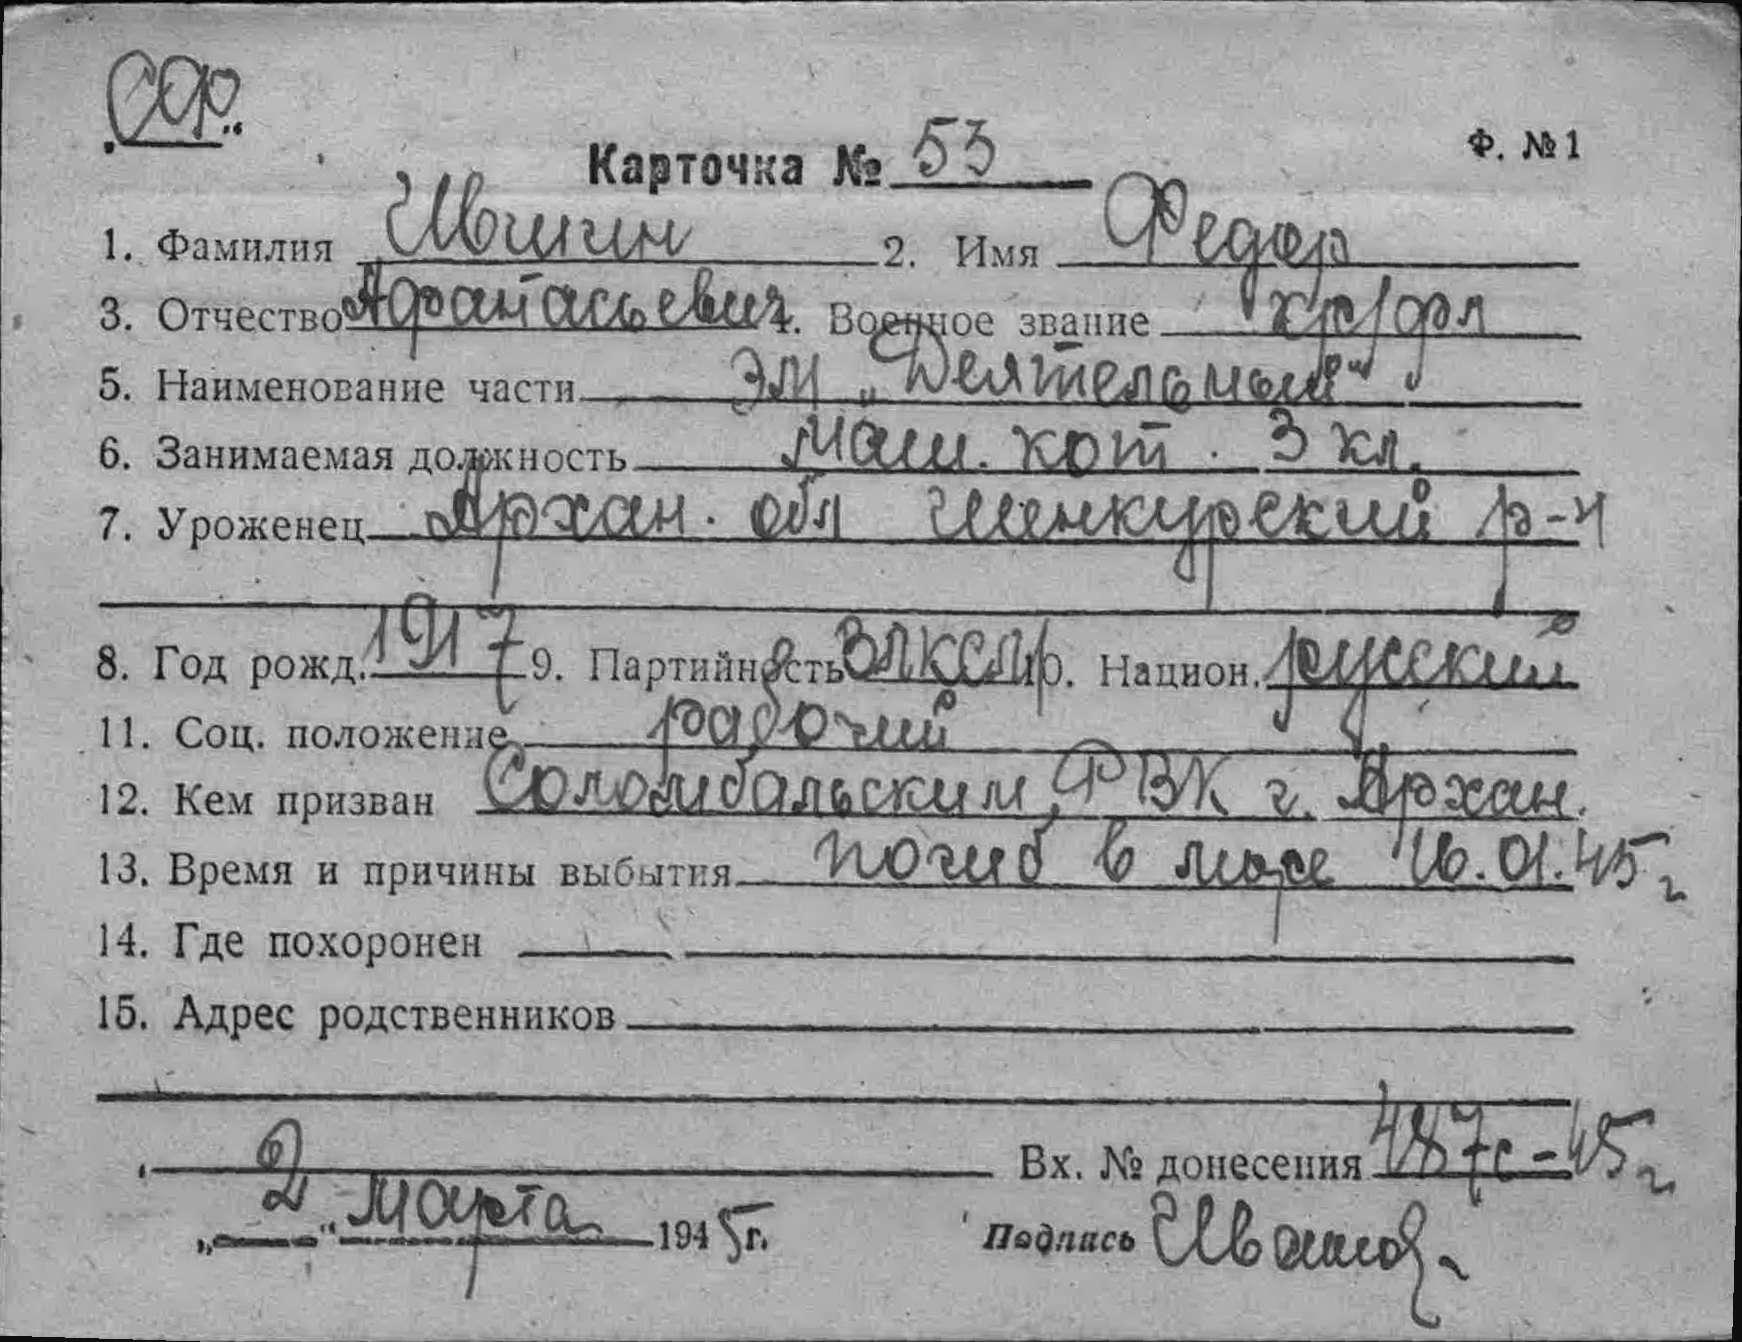 СФ.
Карточка № 53 Ф. № 1
1. Фамилия Ившин 2. Имя Федор
3. Отчество Афанасьевич 4. Военное звание кр/фл
5. Наименование части ЭМ „Деятельный“
6. Занимаемая должность маш. кот. 3 кл.
7. Уроженец Архан. обл Шенкурский р-н
8. Год рожд. 1917 9. Партийность ВЛКСМ 10. Национ. русский
11. Соц. положение рабочий
12. Кем призван Соломбальским РВК г. Архан.
13. Время и причины выбытия погиб в море 16.01.45 г
14. Где похоронен
15. Адрес родственников
Вх. № донесения 487с-45 г
„2“ марта 1945 г. Подпись